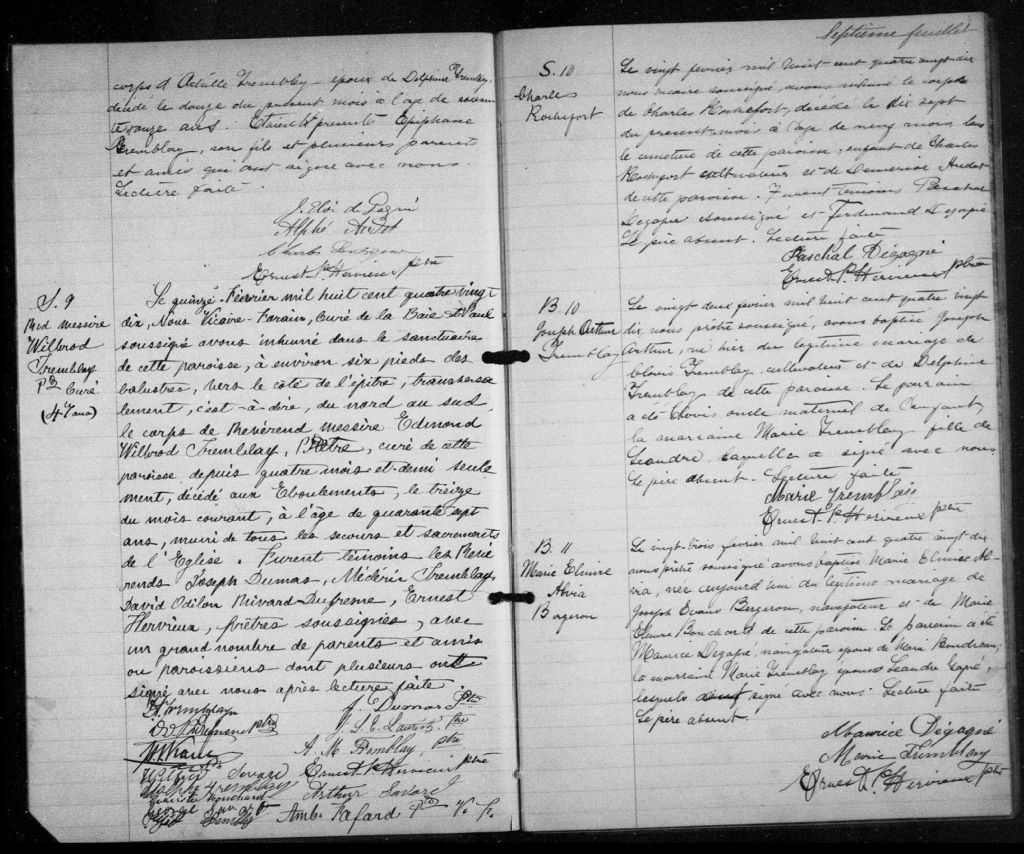 corps d'Achille Tremblay époux de Delphine Tremblay,
décédé le douze du présent mois à l'âge de soixan
te onze ans. Etaient présents Epiphane
Tremblay, son fils et plusieurs parents
et amis qui ont signé avec nous.
Lecture faite.
J. Eloi de Gagné
Alphé Audet
Charles
Ernest P. Hervieux ptre
S. 9
Rvd Messire
Wilbrod
Tremblay
Ptre Curé
(47 ans)
Le quinze Février mil huit cent quatre vingt
dix, Nous Vicaire-Forain, Curé de la Baie St Paul
soussigné avons inhumé dans le sanctuaire
de cette paroisse, à environ six pieds des
balustres, vers le côté de l'épître, transversa
lement, c'est-à-dire, du nord au sud,
le corps de Révérend Messire Edmond
Wilbrod Tremblay, Prêtre, curé de cette
paroisse depuis quatre mois et demi seule
ment, décédé aux Eboulements, le treize
du mois courant, à l'âge de quarante sept
ans, muni de tous les secours et sacrements
de l'Eglise. Furent témoins les Révé
rends Joseph Dumas, Médéric Tremblay,
David Odilon Rivard Dufresne, Ernest
Hervieux, prêtres soussignés, avec
un grand nombre de parents et amis
ou paroissiens dont plusieurs ont
signé avec nous après lecture faite
Tremblay
J. Dumas Ptre
D. O. R. Dufresne ptre
ptre
A. M. Tremblay, ptre
Savard
Ernest P. Hervieux ptre
Tremblay
Arthur Savard
Bouchard
George Savard
Tremblay
Amb. Fafard Ptre V. F.
Septième feuillet
S. 10
Charles
Rochefort
Le vingt février mil huit cent quatre vingt-dix
nous vicaire soussigné, avons inhumé le corps
de Charles Rochefort, décédé le dix sept
du présent mois à l'age de neuf mois, dans
le cimetière de cette paroisse, enfant de Charles
Rochefort cultivateur et de Démerise Audet
de cette paroisse. Furent témoins Paschal
Dégagné soussigné et Ferdinand Dégagné
Le père absent. Lecture faite
Paschal Dégagné
Ernest P. Hervieux ptre
B. 10
Joseph Arthur
Tremblay
Le vingt deux février mil huit cent quatre vingt
dix nous prêtre soussigné, avons baptisé Joseph
Arthur, né hier du légitime mariage de
Clovis Tremblay, cultivateur et de Delphine
Tremblay de cette paroisse. Le parrain
a été Clovis oncle maternel de l'enfant,
la marraine Marie Tremblay fille de
Léandre, laquelle a signé avec nous.
Le père absent. Lecture faite
Marie Tremblay
Ernest P. Hervieux ptre
B. 11
Marie Elmire
Alvia
Bergeron
Le vingt-trois février mil huit cent quatre vingt dix
nous prêtre soussigné avons baptisé Marie Elmire Al
via, née aujourd'hui du légitime mariage de
Joseph Bergeron, navigateur et de Marie
Elmire Bouchard de cette paroisse. Le parrain a été
Maurice Dégagné, navigateur époux de Marie Boudreau,
la marraine Marie Tremblay épouse Léandre Gagné,
lesquels ont signé avec nous. Lecture faite
Le père absent.
Maurice Dégagné
Marie Tremblay
Ernest P. Hervieux ptre